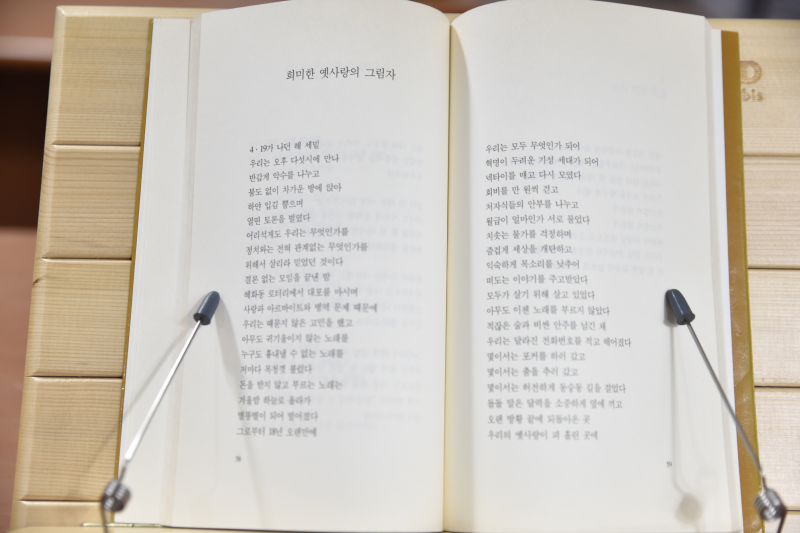 희미한 옛사랑의 그림자
4·19가 나던 해 세밑
우리는 오후 다섯시에 만나
반갑게 악수를 나누고
불도 없이 차가운 방에 앉아
하얀 입김 뿜으며
열띤 토론을 벌였다
어리석게도 우리는 무엇인가를
정치와는 전혀 관계없는 무엇인가를
위해서 살리라 믿었던 것이다
결론 없는 모임을 끝낸 밤
혜화동 로터리에서 대포를 마시며
사랑과 아르바이트와 병역 문제 때문에
우리는 때묻지 않은 고민을 했고
아무도 귀기울이지 않는 노래를
누구도 흉내낼 수 없는 노래를
저마다 목청껏 불렀다
돈을 받지 않고 부르는 노래는
겨울밤 하늘로 올라가
별똥별이 되어 떨어졌다
그로부터 18년 오랜만에
58
우리는 모두 무엇인가 되어
혁명이 두려운 기성 세대가 되어
넥타이를 매고 다시 모였다
회비를 만 원씩 걷고
처자식들의 안부를 나누고
월급이 얼마인가 서로 물었다
치솟는 물가를 걱정하며
즐겁게 세상을 개탄하고
익숙하게 목소리를 낮추어
떠도는 이야기를 주고받았다
모두가 살기 위해 살고 있었다
아무도 이젠 노래를 부르지 않았다
적잖은 술과 비싼 안주를 남긴 채
우리는 달라진 전화번호를 적고 헤어졌다
몇이서는 포커를 하러 갔고
몇이서는 춤을 추러 갔고
몇이서는 허전하게 동숭동 길을 걸었다
돌돌 말은 달력을 소중하게 옆에 끼고
오랜 방황 끝에 되돌아온 곳
우리의 옛사랑이 피 흘린 곳에
59